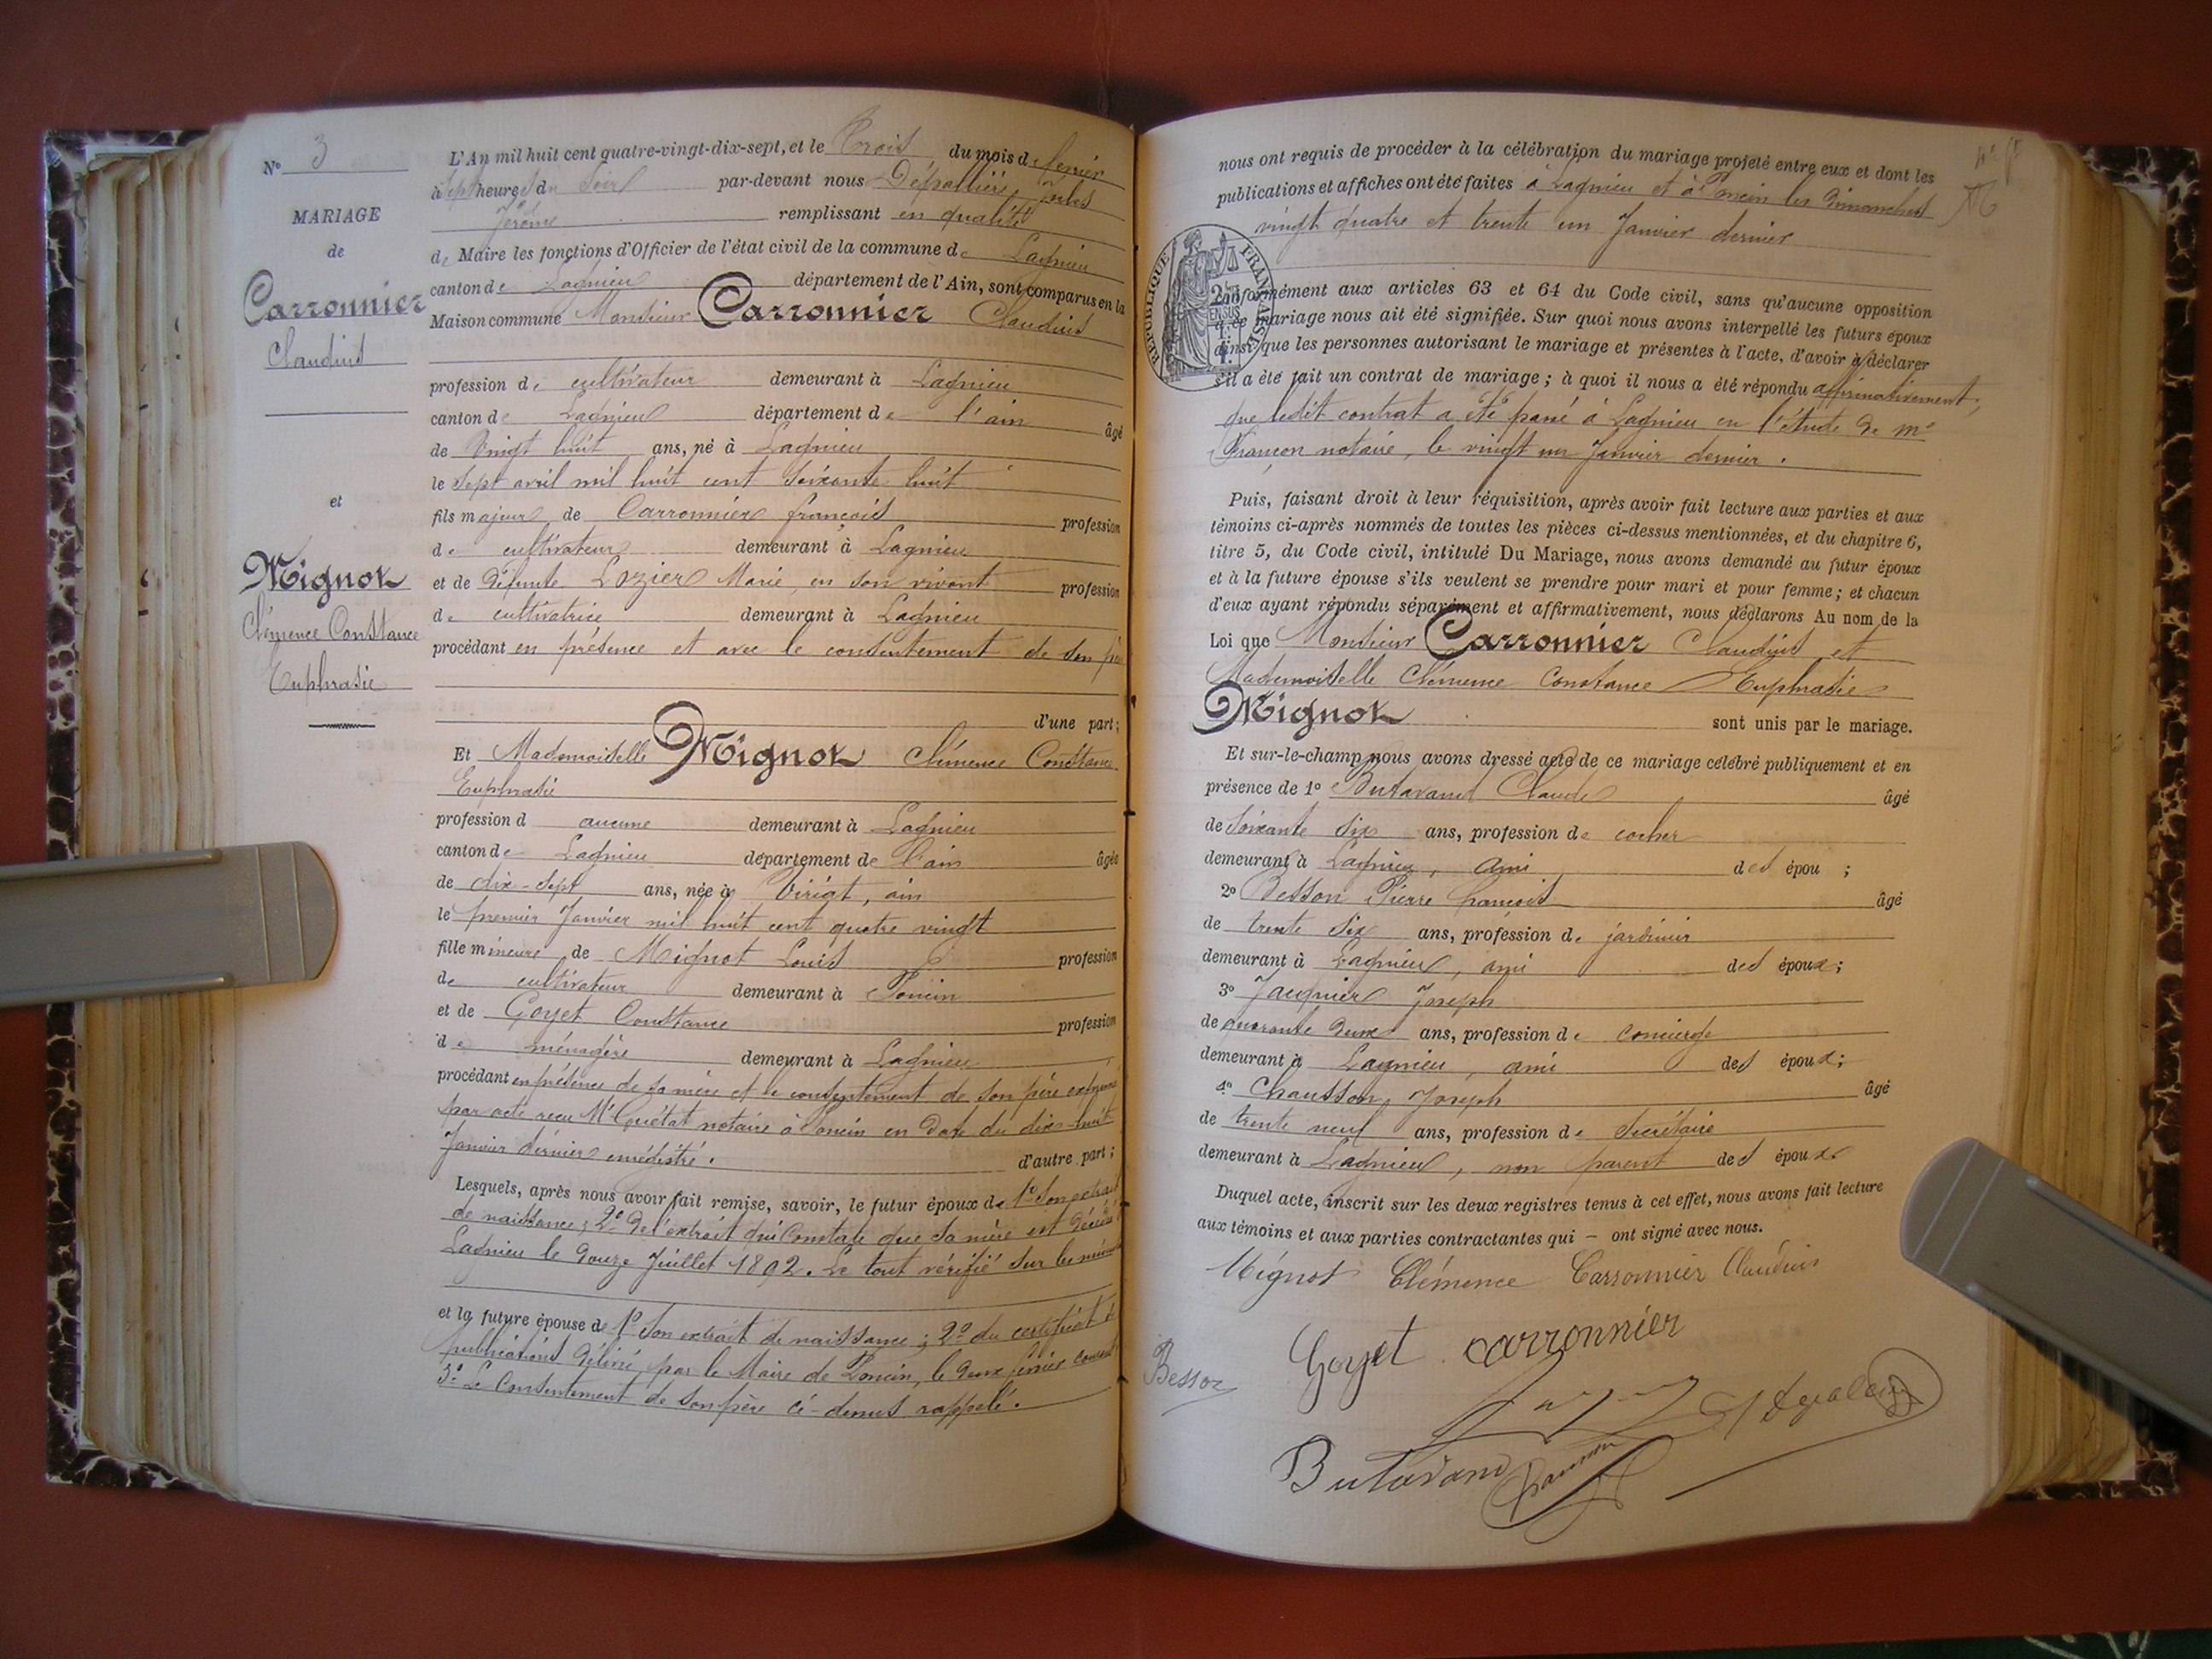 N° 3
MARIAGE
de
Carronnier
Claudius
et
Mignot
Clémence Constance
Euphrasie
L'An mil huit cent quatre-vingt-dix-sept, et le Trois du mois de février
à sept heures du Soir par-devant nous Dépallière Jules
Jérôme remplissant en qualité
de Maire les fonctions d'Officier de l'état civil de la commune de Lagnieu
canton de Lagnieu département de l'Ain, sont comparus en la
Maison commune Monsieur Carronnier Claudius
profession de cultivateur demeurant à Lagnieu
canton de Lagnieu département de l'ain âgé
de Vingt huit ans, né à Lagnieu
le Sept avril mil huit cent soixante huit
fils majeur de Carronnier françois profession
de cultivateur demeurant à Lagnieu
et de défunte Lozier Marie, en son vivant profession
de cultivatrice demeurant à Lagnieu
procédant en présence et avec le consentement de son père
d'une part;
Et Mademoiselle Mignot Clémence Constance
Euphrasie
profession d aucune demeurant à Lagnieu
canton de Lagnieu département de l'ain âgée
de dix-sept ans, née à Viriat, ain
le premier Janvier mil huit cent quatre vingt
fille mineure de Mignot Louis profession
de cultivateur demeurant à Poncin
et de Goyet Constance profession
de ménagère demeurant à Lagnieu
procédant en présence de sa mère et le consentement de son père exprimé
par acte reçu Me Guétat notaire à Poncin en date du dix-huit
Janvier dernier enrégistré. d'autre part;
Lesquels, après nous avoir fait remise, savoir, le futur époux de 1° Son extrait
de naissance; 2° De l'extrait qui Constate que sa mère est décédée
Lagnieu le douze Juillet 1892. Le tout vérifié sur les
et la future épouse de 1° Son extrait de naissance; 2° du certificat de
publications délivré par le Maire de Poncin, le deux février courant
3° Le Consentement de son père ci-dessus rappelé.
nous ont requis de procéder à la célébration du mariage projeté entre eux et dont les
publications et affiches ont été faites à Lagnieu et à Poncin les dimanches
vingt quatre et trente un Janvier dernier
RÉPUBLIQUE FRANÇAISE
conformément aux articles 63 et 64 du Code civil, sans qu'aucune opposition
à ce mariage nous ait été signifiée. Sur quoi nous avons interpellé les futurs époux
ainsi que les personnes autorisant le mariage et présentes à l'acte, d'avoir à déclarer
s'il a été fait un contrat de mariage; à quoi il nous a été répondu affirmativement;
que ledit contrat a été passé à Lagnieu en l'étude de me
Françon notaire, le vingt un Janvier dernier.
Puis, faisant droit à leur réquisition, après avoir fait lecture aux parties et aux
témoins ci-après nommés de toutes les pièces ci-dessus mentionnées, et du chapitre 6,
titre 5, du Code civil, intitulé Du Mariage, nous avons demandé au futur époux
et à la future épouse s'ils veulent se prendre pour mari et pour femme; et chacun
d'eux ayant répondu séparément et affirmativement, nous déclarons Au nom de la
Loi que Monsieur Carronnier Claudius et
Mademoiselle Clémence Constance Euphrasie
Mignot sont unis par le mariage.
Et sur-le-champ nous avons dressé acte de ce mariage célébré publiquement et en
présence de 1° Butavand Claude âgé
de soixante six ans, profession de cocher
demeurant à Lagnieu, ami des épou ;
2° Besson Pierre François âgé
de trente six ans, profession de jardinier
demeurant à Lagnieu, ami des époux;
3° Jacquier Joseph
de quarante deux ans, profession de concierge
demeurant à Lagnieu, ami des époux;
4° Chausson, Joseph âgé
de trente neuf ans, profession de Secrétaire
demeurant à Lagnieu, non parent des époux
Duquel acte, inscrit sur les deux registres tenus à cet effet, nous avons fait lecture
aux témoins et aux parties contractantes qui – ont signé avec nous.
Mignot Clémence Carronnier Claudius
Goyet carronnier
Besson
Butavand